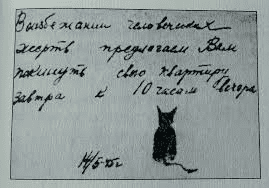 Во избежании человеческих
жертв предлогаем Вам
покинуть свою квартиру
завтра к 10 часам вечера